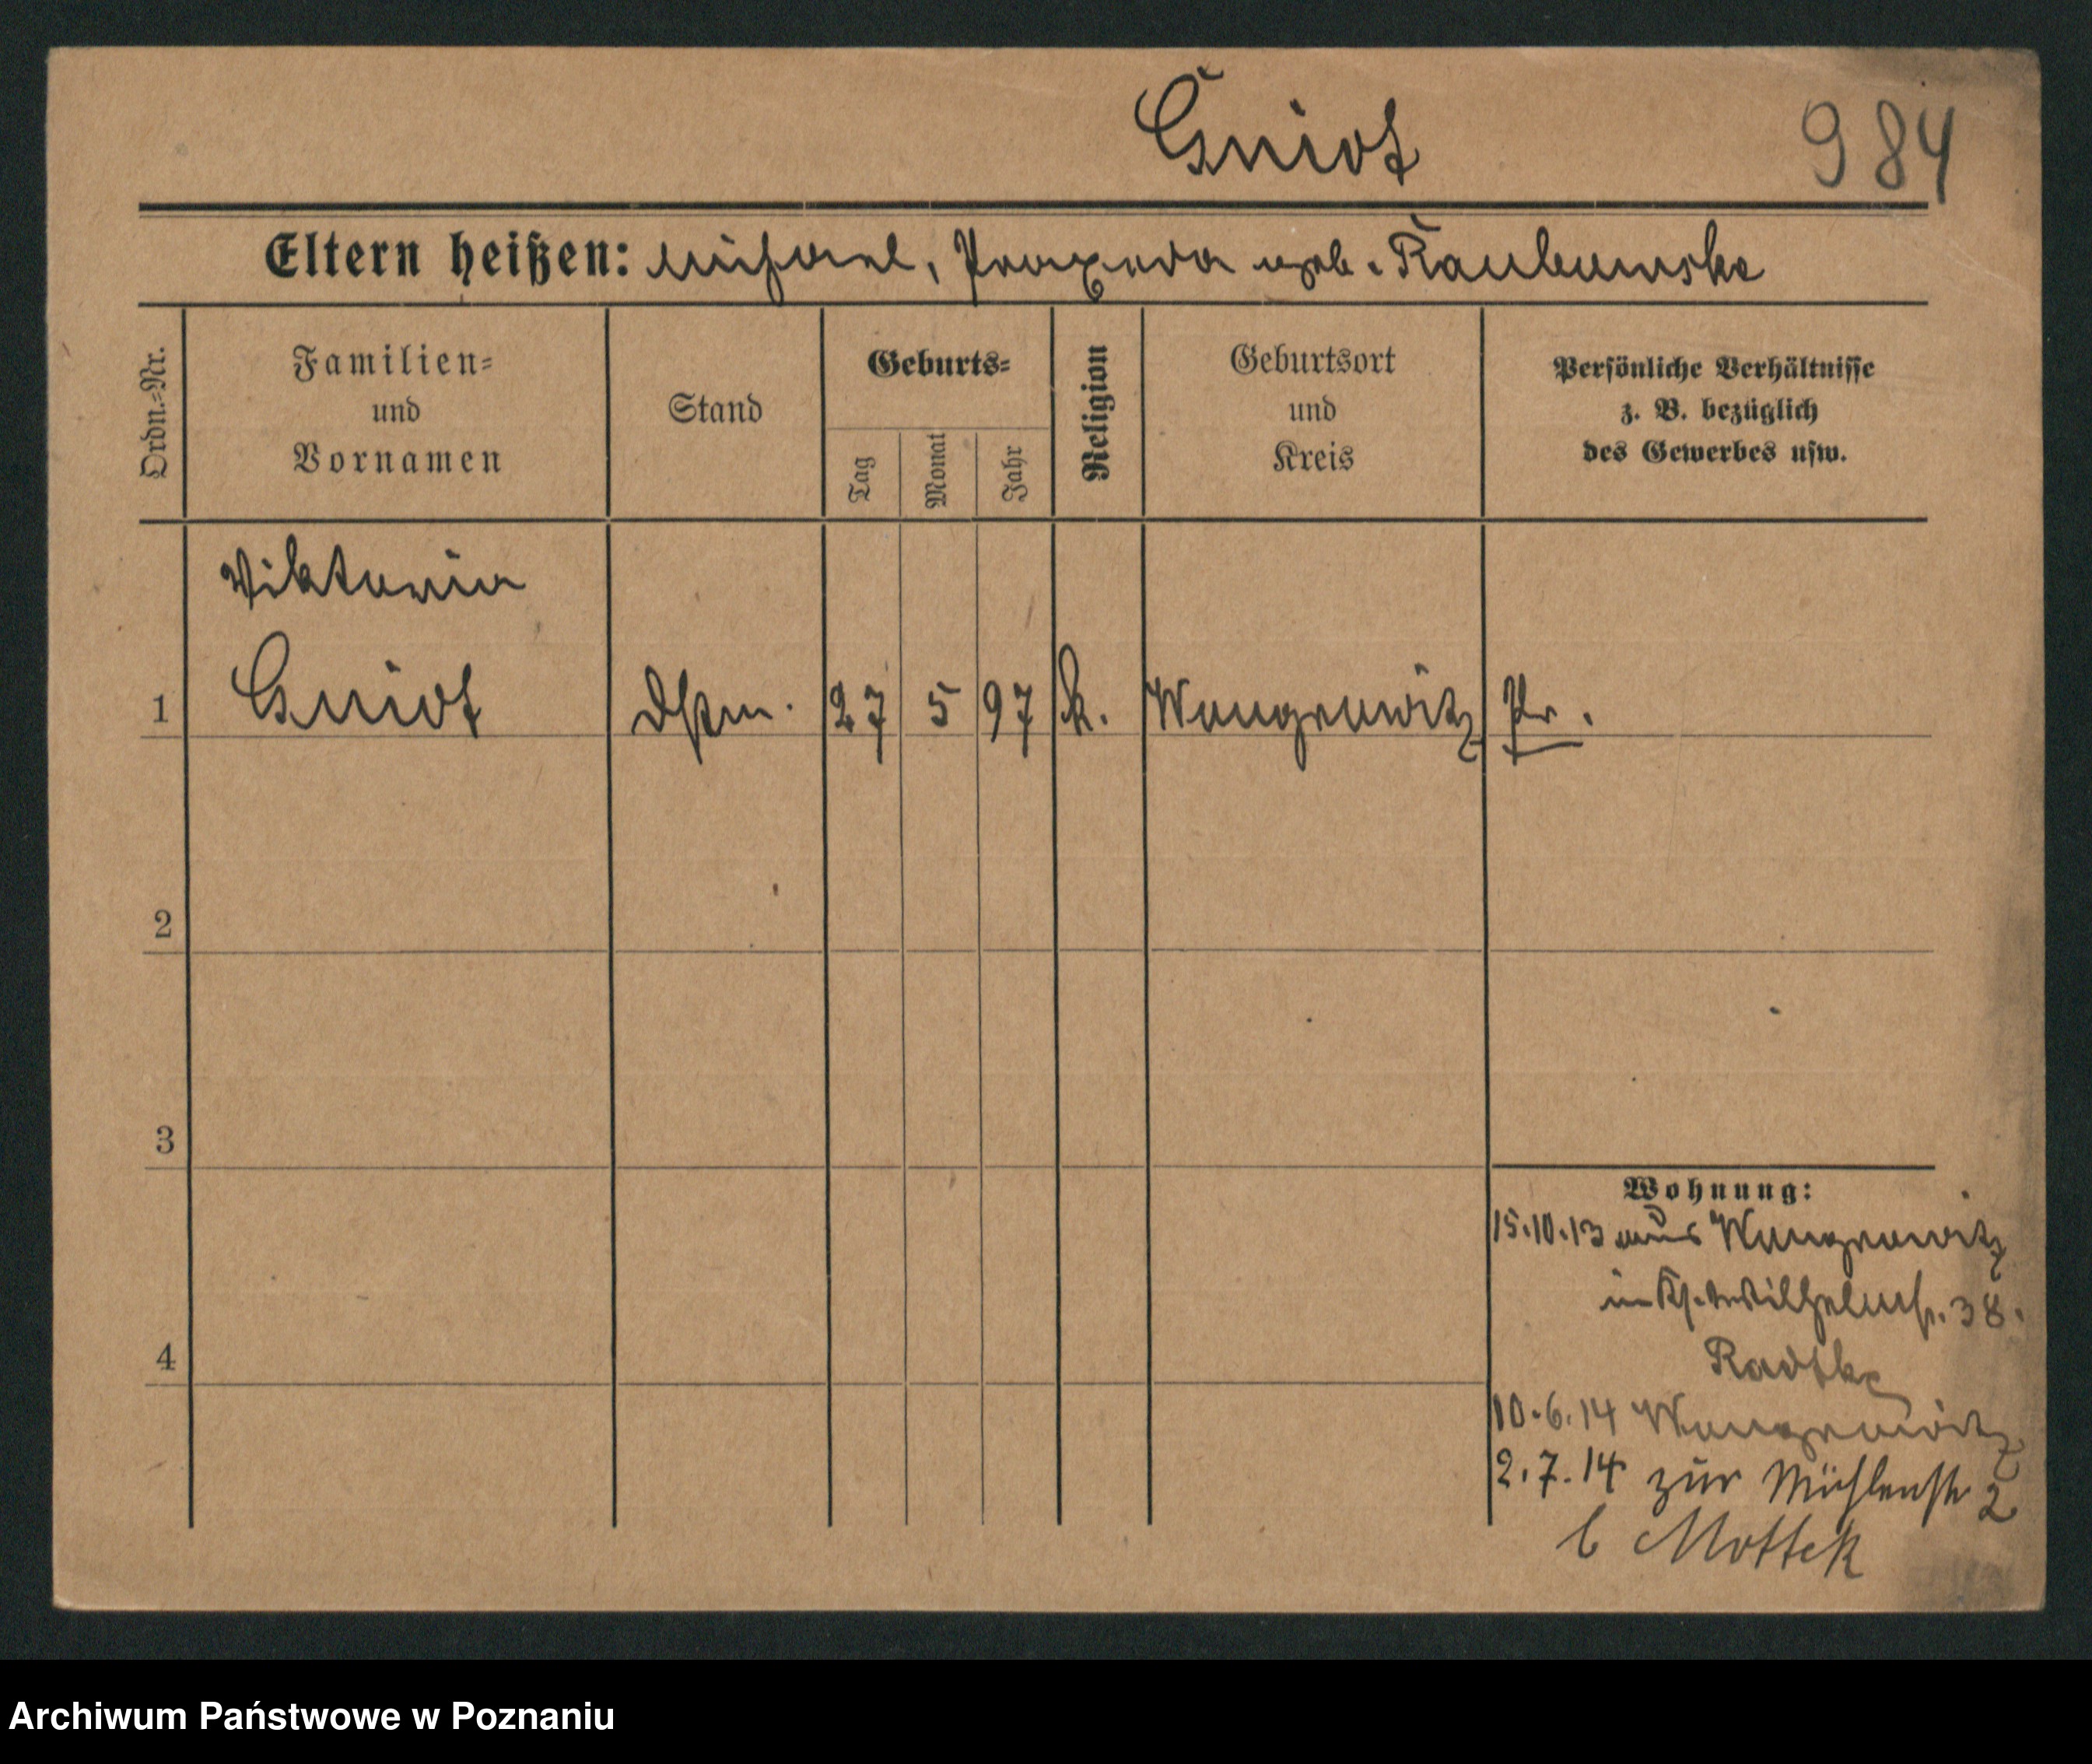 Gniot
984
Eltern heißen: Michael, Praxeda geb. Raubuwska
Ordn.=Nr.
Familien=
und
Vornamen
Stand
Geburts=
Tag
Monat
Jahr
Religion
Geburtsort
und
Kreis
Persönliche Verhältnisse
z. B. bezüglich
des Gewerbes usw.
Viktoria
1 Gniot Dstm. 27 5 97 k. Wongrowitz Pr.
2
3
4
Wohnung:
15.10.13 aus Wongrowitz
in Wilhelmstr. 38.
Radtke
10.6.14 Wongrowitz
2.7.14 zur Mühlenstr 2
b Mottek
Archiwum Państwowe w Poznaniu